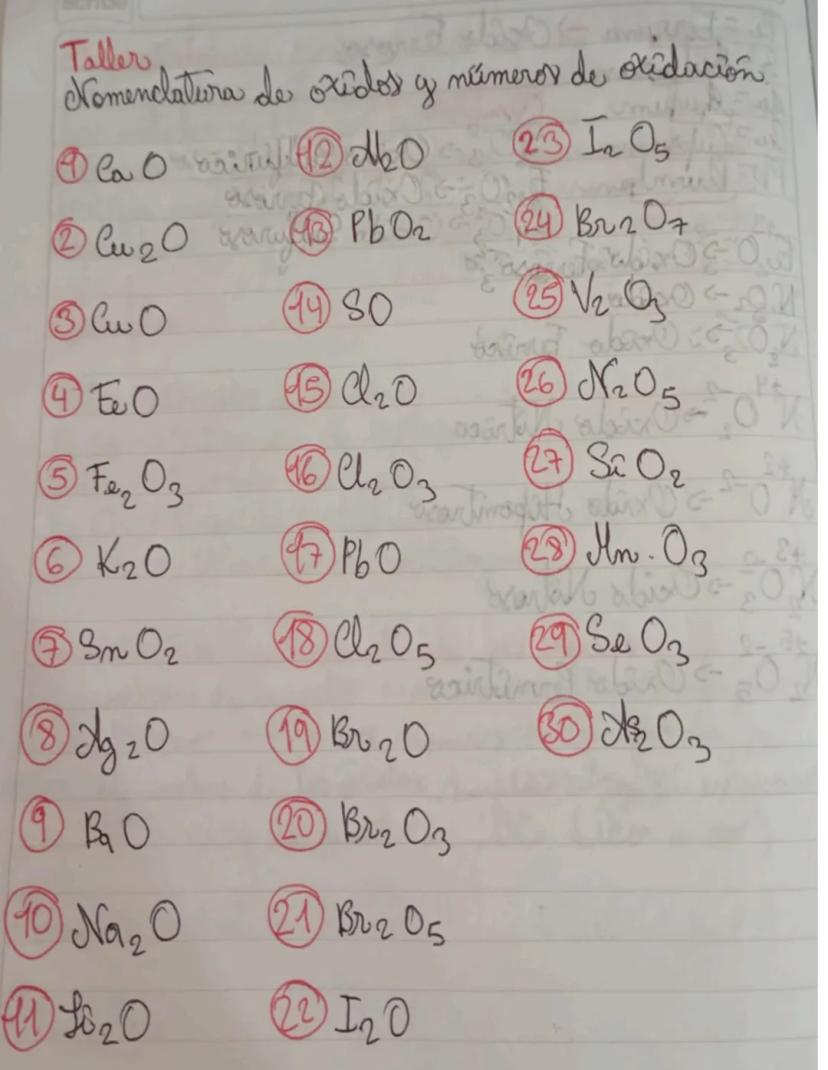 Taller
Nomenclatura de oxidos y números de oxidación.
1 CaO
2 Cu2O
3 CuO
4 FeO
5 Fe2O3
6 K2O
7 SnO2
8 Ag2O
9 BaO
10 Na2O
11 Li2O
12 N2O
13 PbO2
14 SO
15 Cl2O
16 Cl2O3
17 PbO
18 Cl2O5
19 Br2O
20 Br2O3
21 Br2O5
22 I2O
23 I2O5
24 Br2O7
25 V2O3
26 N2O5
27 SiO2
28 Mn·O3
29 SeO3
30